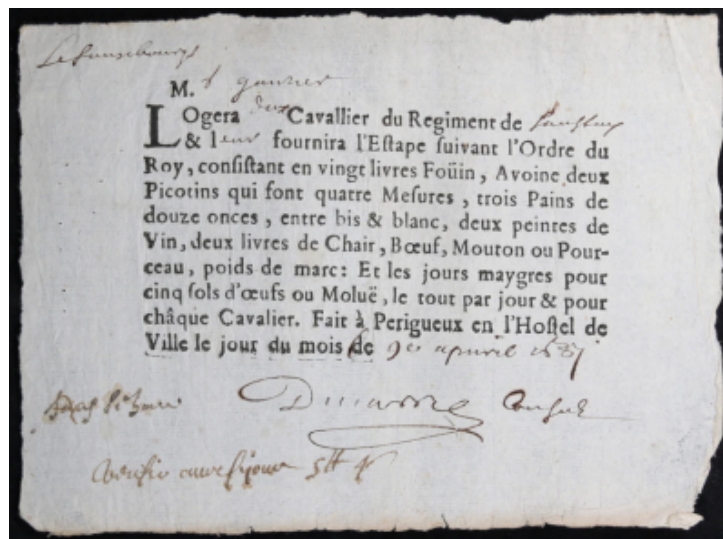 M.
LOgera deux Cavallier du Regiment de
& leur fournira l'Eſtape ſuivant l'Ordre du
Roy, conſiſtant en vingt livres Foüin, Avoine deux
Picotins qui font quatre Meſures, trois Pains de
douze onces, entre bis & blanc, deux peintes de
Vin, deux livres de Chair, Bœuf, Mouton ou Pour-
ceau, poids de marc: Et les jours maygres pour
cinq ſols d'œufs ou Moluë, le tout par jour & pour
châque Cavalier. Fait à Perigueux en l'Hoſtel de
Ville le jour du mois de
Conſul